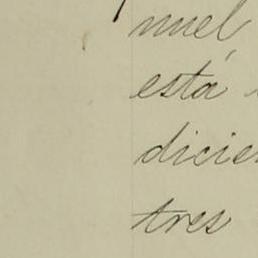 nuel
está
dicie
tres